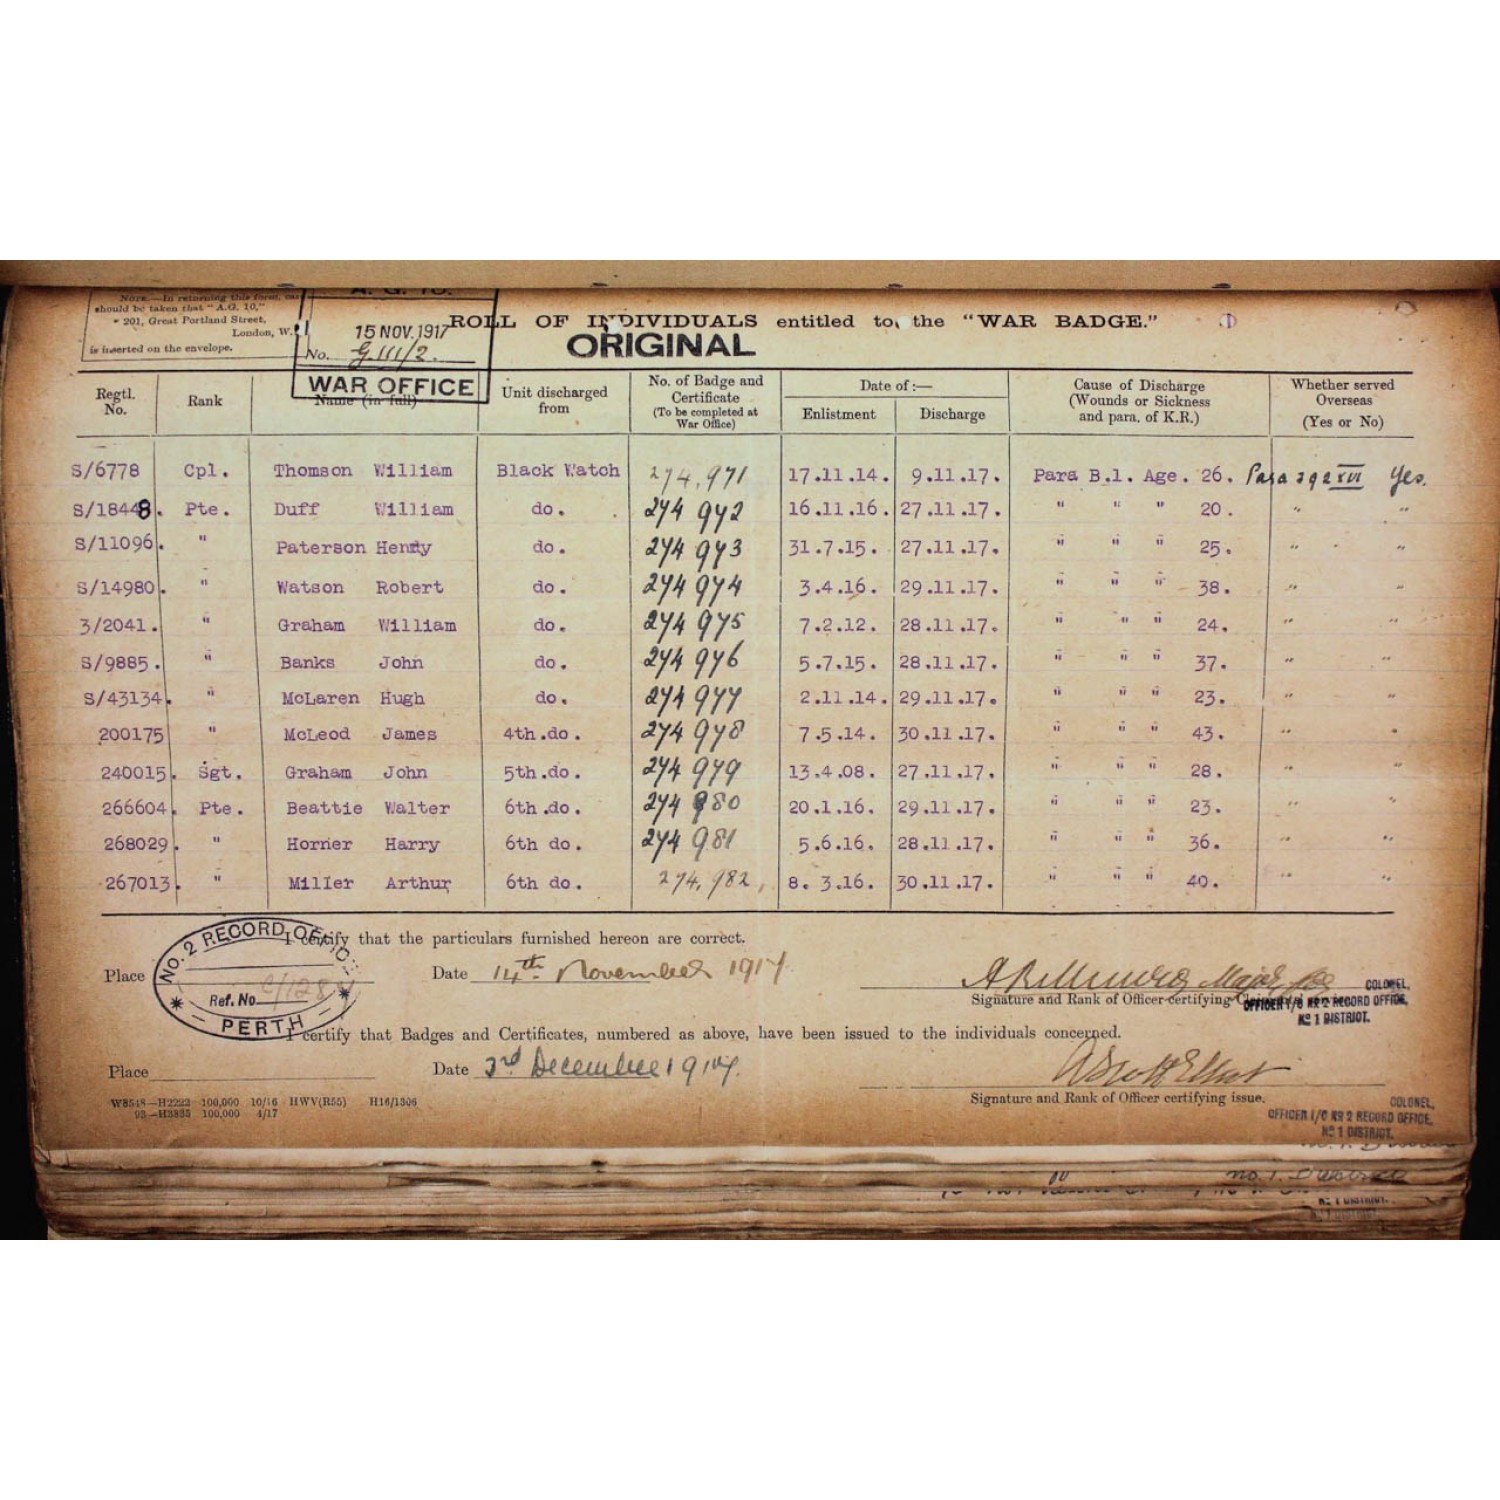 A. G. 10.
NOTE.—In returning this form, car
should be taken that "A.G. 10,"
201, Great Portland Street,
London, W.1
is inserted on the envelope.
15 NOV. 1917
No. G.111/2.
WAR OFFICE
ROLL OF INDIVIDUALS entitled to the "WAR BADGE."
ORIGINAL
Regtl. No. Rank Name (in full) Unit discharged from No. of Badge and Certificate (To be completed at War Office) Date of :— Enlistment Discharge Cause of Discharge (Wounds or Sickness and para. of K.R.) Whether served Overseas (Yes or No)
S/6778 Cpl. Thomson William Black Watch 274,971 17.11.14. 9.11.17. Para B.1. Age. 26. Para 392 XVI Yes.
S/18448. Pte. Duff William do. 274 972 16.11.16. 27.11.17. " " " 20. " "
S/11096. " Paterson Henry do. 274 973 31.7.15. 27.11.17. " " " 25. " "
S/14980. " Watson Robert do. 274 974 3.4.16. 29.11.17. " " " 38. " "
3/2041. " Graham William do. 274 975 7.2.12. 28.11.17. " " " 24. " "
S/9885. " Banks John do. 274 976 5.7.15. 28.11.17. " " " 37. " "
S/43134. " McLaren Hugh do. 274 977 2.11.14. 29.11.17. " " " 23. " "
200175 " McLeod James 4th.do. 274 978 7.5.14. 30.11.17. " " " 43. " "
240015. Sgt. Graham John 5th.do. 274 979 13.4.08. 27.11.17. " " " 28. " "
266604. Pte. Beattie Walter 6th.do. 274 980 20.1.16. 29.11.17. " " " 23. " "
268029. " Horner Harry 6th do. 274 981 5.6.16. 28.11.17. " " " 36. " "
267013. " Miller Arthur 6th do. 274,982, 8. 3.16. 30.11.17. " " " 40. " "
I certify that the particulars furnished hereon are correct.
Place Date 14th November 1917
NO. 2 RECORD OFFICE
Ref. No.
PERTH
Signature and Rank of Officer certifying
COLONEL,
OFFICER I/C No 2 RECORD OFFICE,
No 1 DISTRICT.
I certify that Badges and Certificates, numbered as above, have been issued to the individuals concerned.
Place Date 3rd December 1917.
Signature and Rank of Officer certifying issue.
W8548—H2222 100,000 10/16 HWV(R55) H16/1306
93—H3835 100,000 4/17
COLONEL,
OFFICER I/C No 2 RECORD OFFICE,
No 1 DISTRICT.
no. 1. District
No 1 DISTRICT.